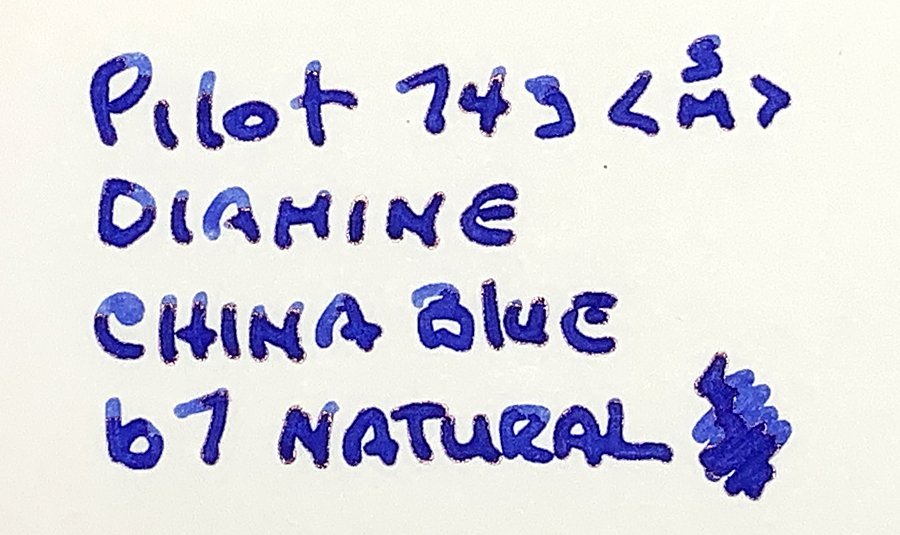 Pilot 743 <SM>
DIAMINE
CHINA BLUE
b7 NATURAL